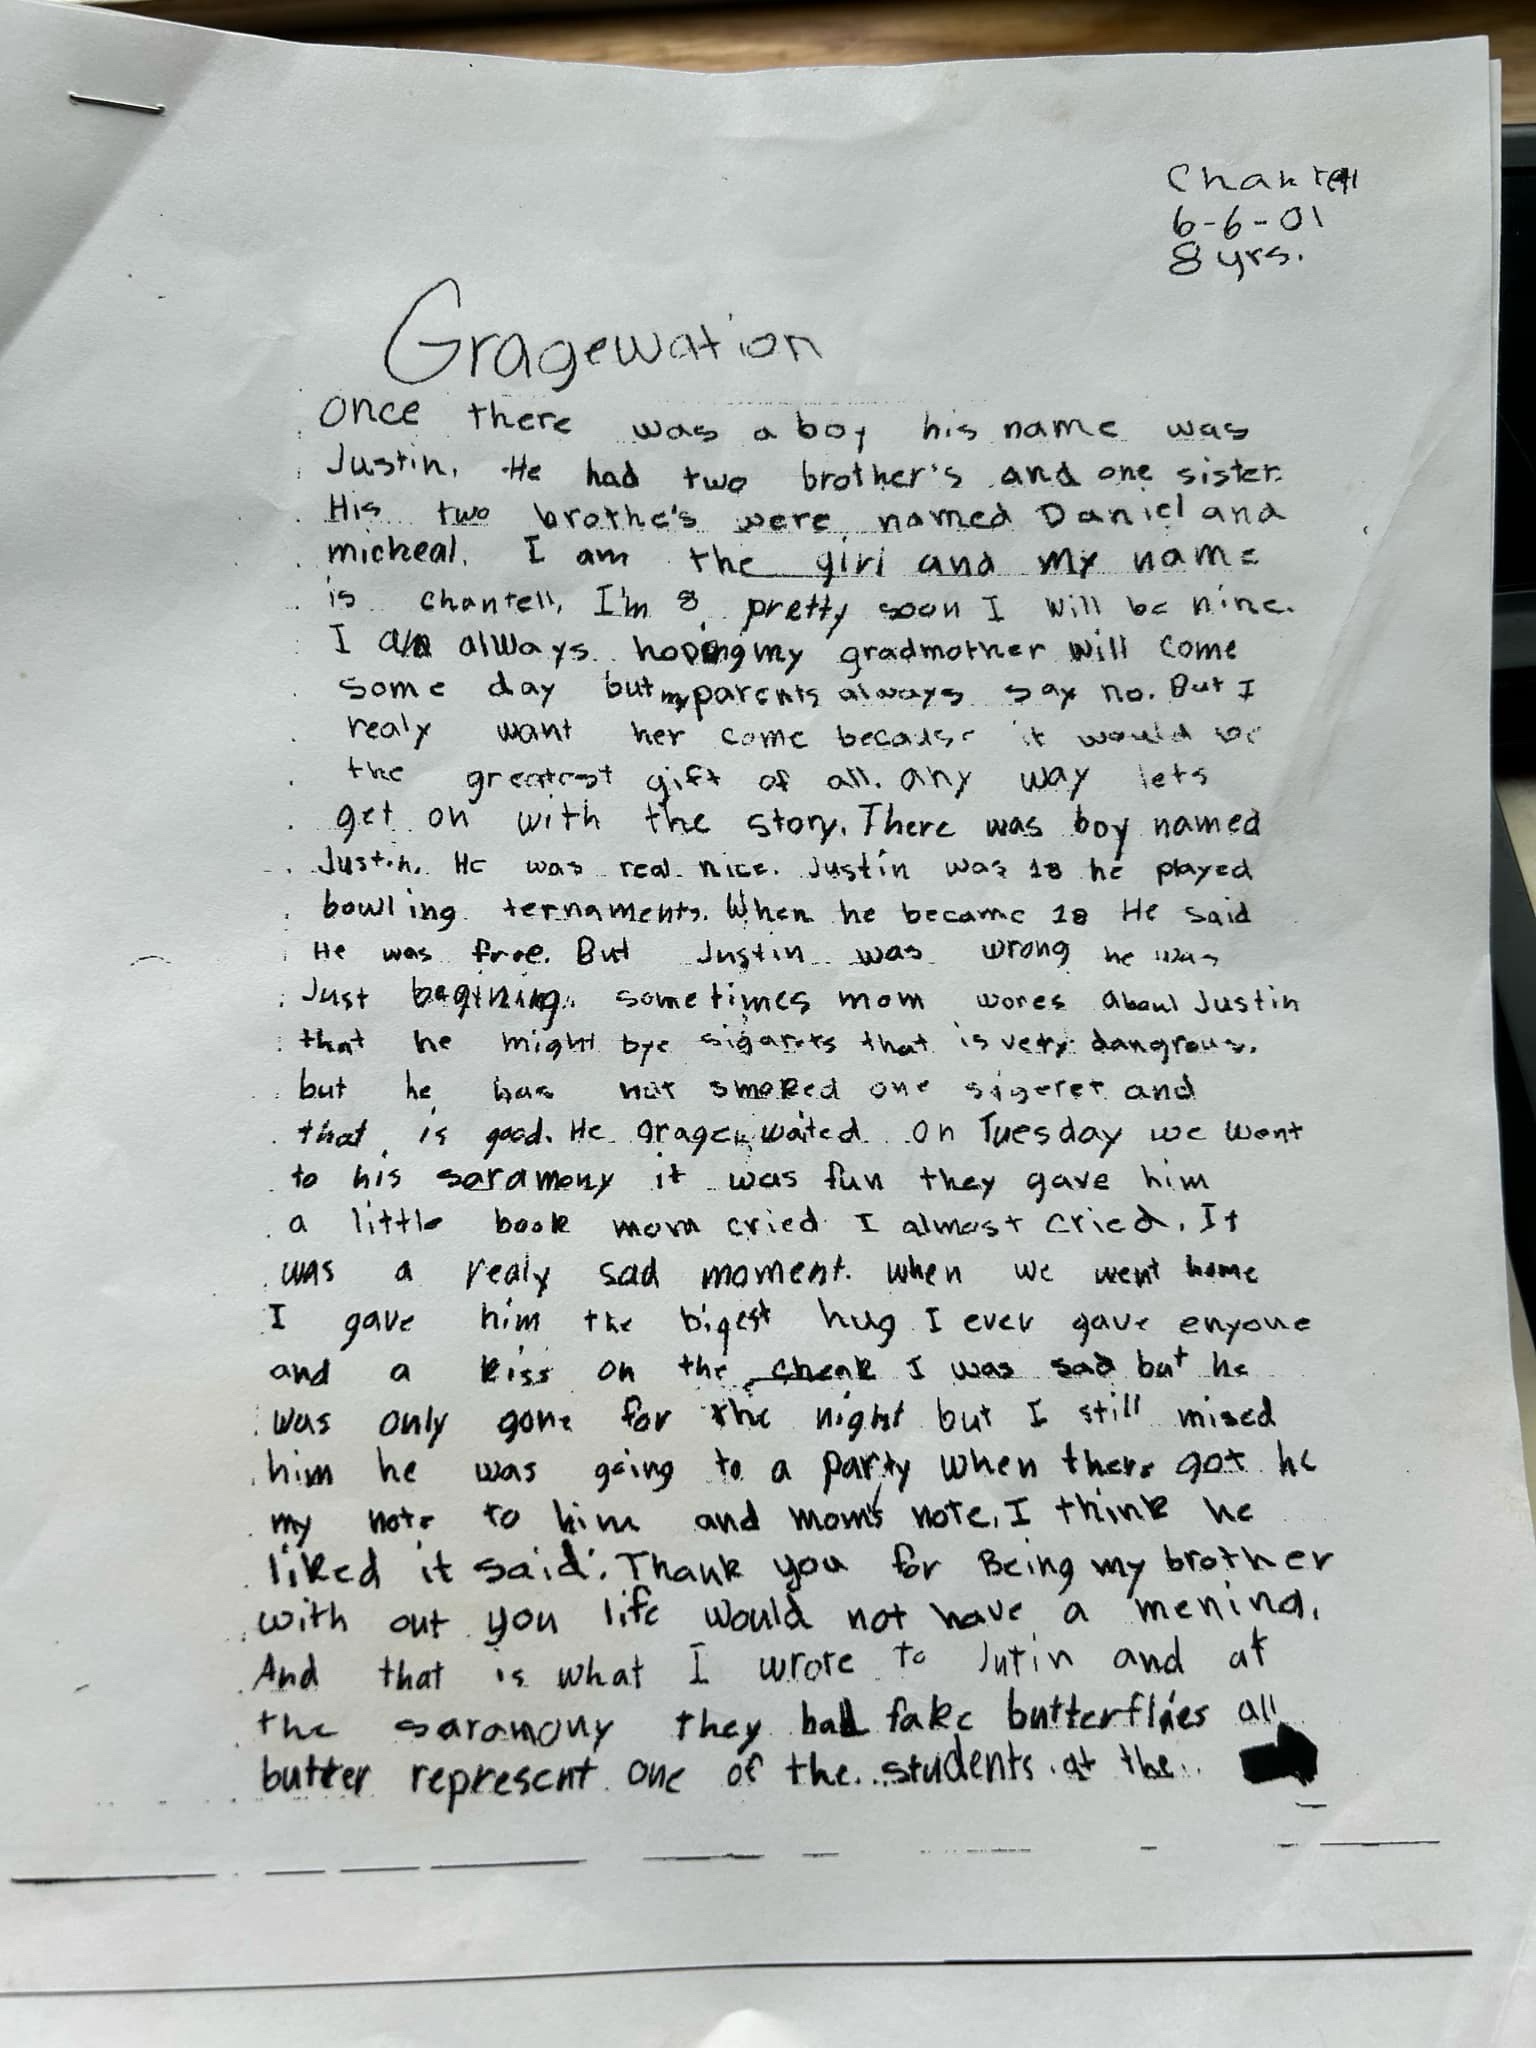 Chantell
6-6-01
8 yrs.
Gragewation
Once there was a boy his name was
Justin. He had two brother's and one sister.
His two brothe's were named Daniel and
micheal. I am the girl and my name
is Chantell, I'm 8 pretty soon I will be nine.
I am always hoping my gradmother will come
some day but my parents always say no. But I
realy want her come because it would be
the greatest gift of all. any way lets
get on with the story. There was boy named
Justin. He was real nice. Justin was 18 he played
bowling ternaments. When he became 18 He said
He was free. But Justin was wrong he was
Just begining. sometimes mom wores about Justin
that he might bye sigarets that is very dangrous.
but he has not smoked one sigeret and
that is good. He gragewaited on Tuesday we went
to his saramony it was fun they gave him
a little book mom cried I almost cried. It
was a realy sad moment. when we went home
I gave him the bigest hug I ever gave enyone
and a kiss on the cheak I was sad but he
was only gone for the night but I still mised
him he was going to a party when there got he
my note to him and mom's note. I think he
liked it said: Thank you for Being my brother
with out you life would not have a mening.
And that is what I wrote to Jutin and at
the saramony they had fake butterflies all
butter represent one of the students at the